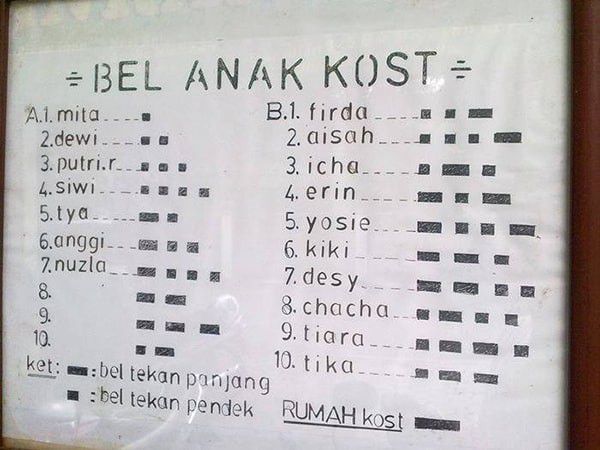 ÷ BEL ANAK KOST ÷
A.1. mita
2. dewi
3. putri.r
4. siwi
5. tya
6. anggi
7. nuzla
8.
9.
10.
B.1. firda
2. aisah
3. icha
4. erin
5. yosie
6. kiki
7. desy
8. chacha
9. tiara
10. tika
ket: : bel tekan panjang
: bel tekan pendek
RUMAH kost